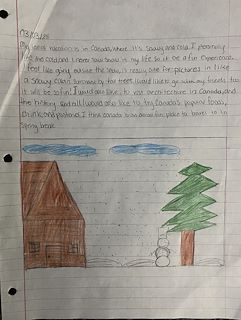 03/03/25
My dream vacation is in Canada, where it's snowy and cold. I personally
like the cold and I never saw snow in my life so it'd be a fun experience.
I feel like going outside the snow, is really cute for pictures in like
a snowy cabin surrounded by tall trees. I would like to go with my friends, too
it will be so fun! I would also like, to visit architecture in Canada, and
the history and all. I would also like to try Canada's popular foods,
drinks, and pastries. I think Canada is an overall fun, place to travel to in
Spring break.